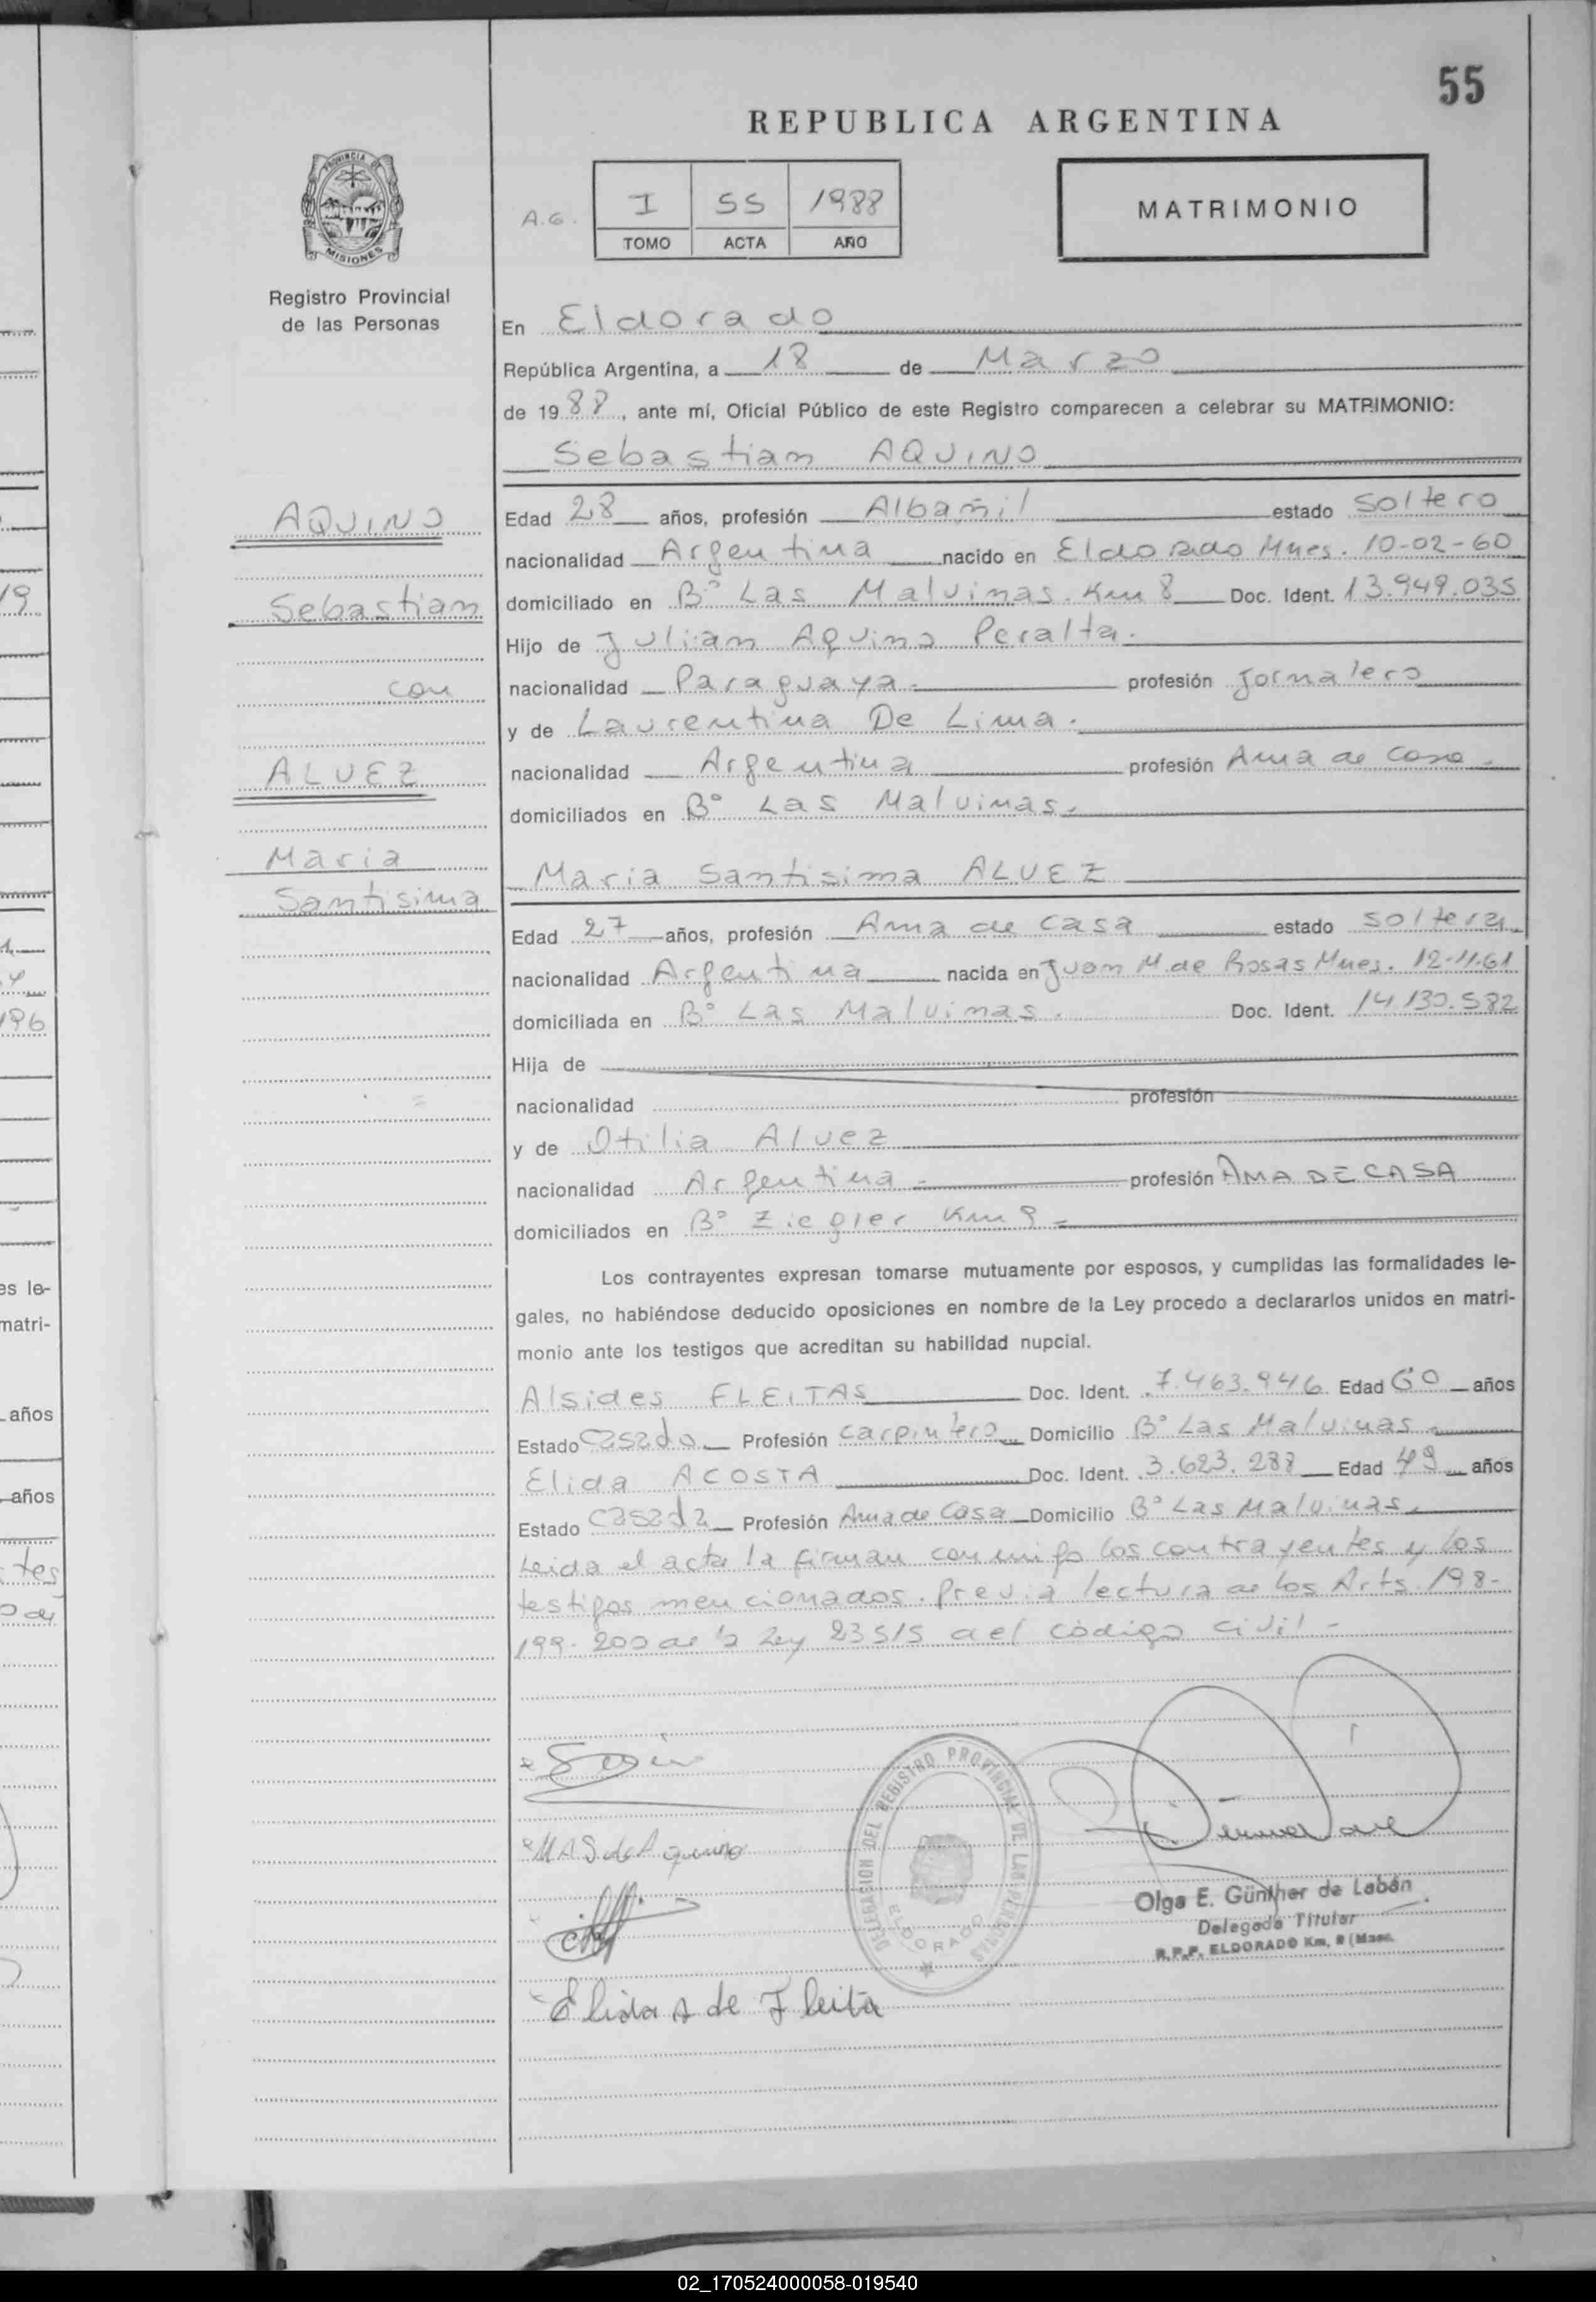 55
REPUBLICA ARGENTINA
PROVINCIA DE
MISIONES
Registro Provincial
de las Personas
A.G.
I 55 1988
TOMO ACTA AÑO
MATRIMONIO
En Eldorado
República Argentina, a 18 de Marzo
de 19 88, ante mí, Oficial Público de este Registro comparecen a celebrar su MATRIMONIO:
Sebastian AQUINO
AQUINO
Sebastian
con
ALVEZ
Maria
Santisima
Edad 28 años, profesión Albañil estado soltero
nacionalidad Argentina nacido en Eldorado Mnes. 10-02-60
domiciliado en Bº Las Malvinas. Km 8 Doc. Ident. 13.949.035
Hijo de Julian Aquino Peralta.
nacionalidad Paraguaya profesión Jornalero
y de Laurentina De Lima.
nacionalidad Argentina profesión Ama de casa
domiciliados en Bº Las Malvinas.
Maria Santisima ALVEZ
Edad 27 años, profesión Ama de casa estado soltera
nacionalidad Argentina nacida en Juan M. de Rosas Mnes. 12-11-61
domiciliada en Bº Las Malvinas. Doc. Ident. 14.130.582
Hija de
nacionalidad profesión
y de Otilia Alvez
nacionalidad Argentina profesión AMA DE CASA
domiciliados en Bº Ziegler Km 9
Los contrayentes expresan tomarse mutuamente por esposos, y cumplidas las formalidades le-
gales, no habiéndose deducido oposiciones en nombre de la Ley procedo a declararlos unidos en matri-
monio ante los testigos que acreditan su habilidad nupcial.
Alsides FLEITAS Doc. Ident. 7.463.946 Edad 60 años
Estado Casado Profesión carpintero Domicilio Bº Las Malvinas
Elida ACOSTA Doc. Ident. 3.623.287 Edad 49 años
Estado Casada Profesión Ama de Casa Domicilio Bº Las Malvinas.
Leida el acta la firman conmigo los contrayentes y los
testigos mencionados. Previa lectura de los Arts. 198-
199-200 de la Ley 23515 del código civil -
M A S de Aquino
Elida A de Fleita
DELEGACION DEL REGISTRO PROVINCIAL DE LAS PERSONAS
ELDORADO
Olga E. Günther de Labán
Delegada Titular
R.P.P. ELDORADO Km. 9 (Mnes.
19
196
es le-
matri-
años
años
tes
02_170524000058-019540